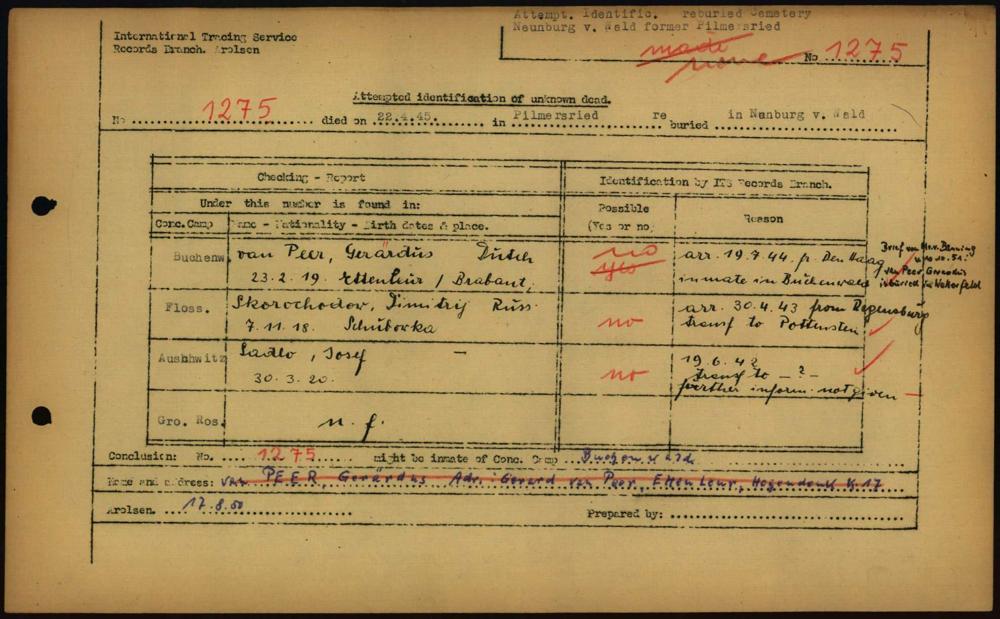 Attempt. Identific. reburied Cemetery
Neunburg v. Wald former Pilmersried
International Tracing Service
Records Branch. Arolsen
made
none
No 1275
Attempted identification of unknown dead.
No 1275 died on 22.4.45. in Pilmersried re buried in Nenburg v. Wald
Checking - Report
Identification by ITS Records Branch.
Under this number is found in:
Possible (Yes or no)
Reason
Conc.Camp
Name - Nationality - Birth dates & place.
Buchenw. van Peer, Gerärdus Dutch no arr. 19.7.44. fr. Den Haag
23.2.19. Ettenleur / Brabant, yes inmate in Buchenwald
Brief von
van Peer Gerardus
Floss. Skorochodov, Dimitrij Russ arr. 30.4.43 from Regensburg
7.11.18. Schuborka no transf to Pottenstein
Auschwitz Sadlo, Josef - 19.6.42
30.3.20. no transf to - ? -
further inform. not given -
Gro. Ros. n. f.
Conclusion: No. 1275 might be inmate of Conc. Camp Buchenwald
Name and address: van PEER, Gerärdus Adr.: Gerard van Peer, Etten Leur, Hogendonk K.17
Arolsen. 17.8.50 Prepared by: